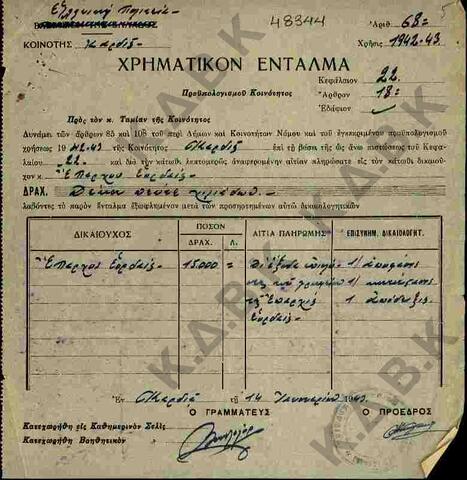 Ἑλληνικὴ Πολιτεία
48344
Ἀριθ. 68=
5
ΚΟΙΝΟΤΗΣ Καρδιᾶς
Χρῆσις 1942-43
ΧΡΗΜΑΤΙΚΟΝ ΕΝΤΑΛΜΑ
Κεφάλαιον 22=
Προϋπολογισμοῦ Κοινότητος
Ἄρθρον 18=
Ἐδάφιον
Πρὸς τὸν κ. Ταμίαν τῆς Κοινότητος
Δυνάμει τῶν ἄρθρων 85 καὶ 108 τοῦ περὶ Δήμων καὶ Κοινοτήτων Νόμου καὶ τοῦ ἐγκεκριμένου προϋπολογισμοῦ
χρήσεως 1942-43 τῆς Κοινότητος Καρδιᾶς ἐπὶ τῇ βάσει τῆς ὡς ἄνω πιστώσεως τοῦ Κεφα-
λαίου 22 καὶ διὰ τὴν κάτωθι λεπτομερῶς ἀναφερομένην αἰτίαν πληρώσατε εἰς τὸν κάτωθι δικαιοῦ-
χον κ. Ἔπαρχον Ἑορδαίας
ΔΡΑΧ. Δέκα πέντε χιλιάδας
λαβόντες τὸ παρὸν ἔνταλμα ἐξωφλημένον μετὰ τῶν προσηρτημένων αὐτῷ δικαιολογητικῶν
ΔΙΚΑΙΟΥΧΟΣ ΠΟΣΟΝ ΔΡΑΧ. Λ. ΑΙΤΙΑ ΠΛΗΡΩΜΗΣ ΕΠΙΣΥΝΗΜ. ΔΙΚΑΙΟΛΟΓΗΤ.
Ἔπαρχον Ἑορδαίας 15.000 = Δι' ἔξοδα 1/ ἀπόφασις
τοῦ γραφείου 1/
τῆς Ἐπαρχίας 1 ἀπόδειξις
Ἑορδαίας
Ἐν Καρδιᾷ τῇ 14 Ἰανουαρίου 1943
Ο ΓΡΑΜΜΑΤΕΥΣ Ο ΠΡΟΕΔΡΟΣ
Κατεχωρήθη εἰς Καθημερινὸν Σελὶς
Κατεχωρήθη Βοηθητικὸν
Κ.Δ.Β.Κ